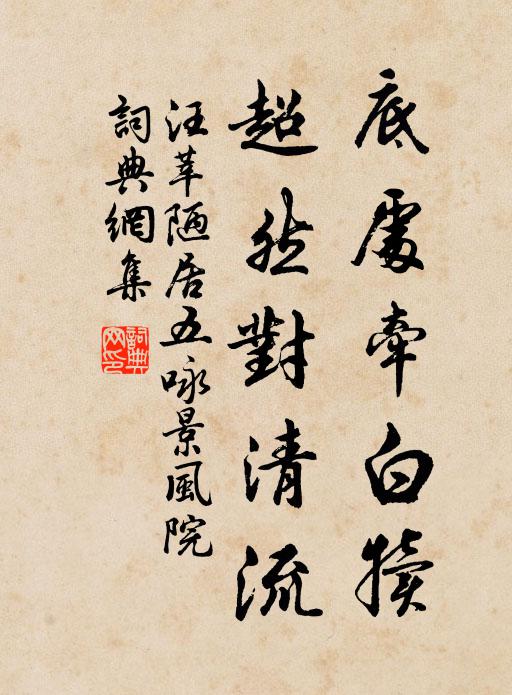 底處牽白犢
超然對清流
汪莘陋居五咏景風院
詞典網集
詞典網印